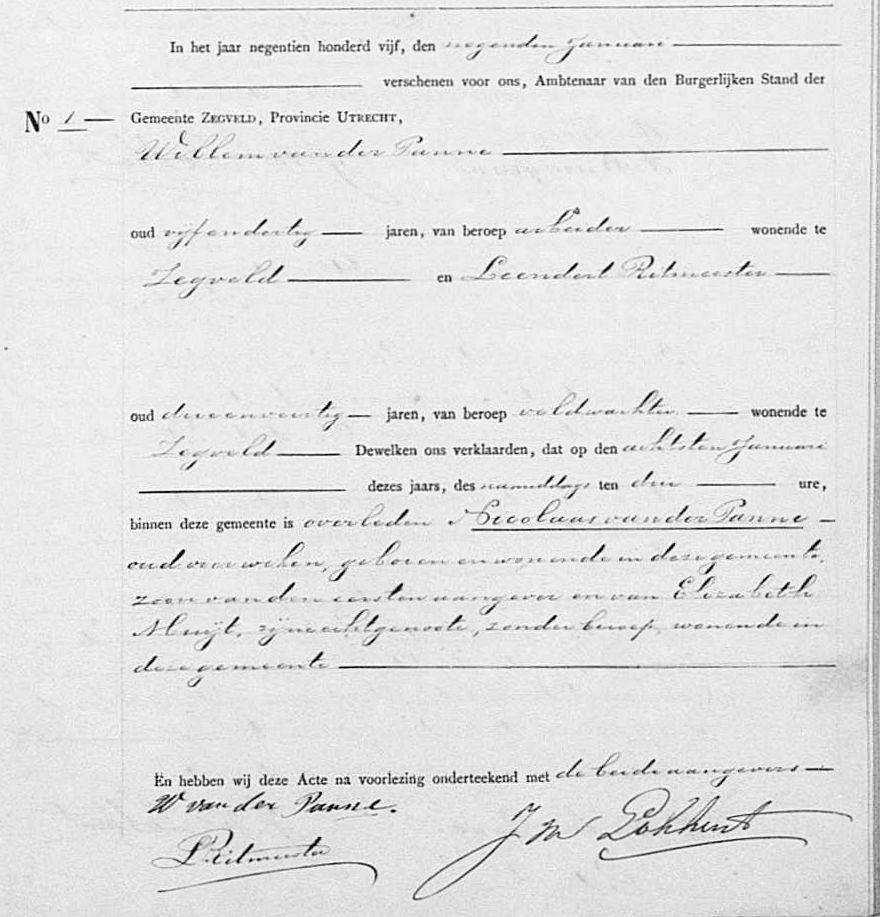 In het jaar negentien honderd vijf, den negenden Januari
verschenen voor ons, Ambtenaar van den Burgerlijken Stand der
No 1 Gemeente ZEGVELD, Provincie UTRECHT,
Willem van der Panne
oud vijf en dertig jaren, van beroep arbeider wonende te
Zegveld en Leendert Ritmeester
oud drie en veertig jaren, van beroep veldwachter wonende te
Zegveld Dewelken ons verklaarden, dat op den achtsten Januari
dezes jaars, des namiddags ten drie ure,
binnen deze gemeente is overleden Nicolaas van der Panne
oud weken, geboren en wonende in deze gemeente,
zoon van den eersten aangever en van Elizabeth
Muijt, zijne echtgenoote, zonder beroep, wonende in
deze gemeente
En hebben wij deze Acte na voorlezing onderteekend met de beide aangevers
W van der Panne.
LRitmeester
J M